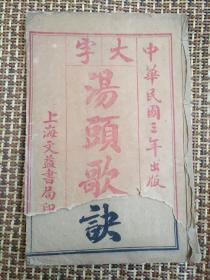 大字
中華民國三年出版
湯頭歌訣
上海文益書局印